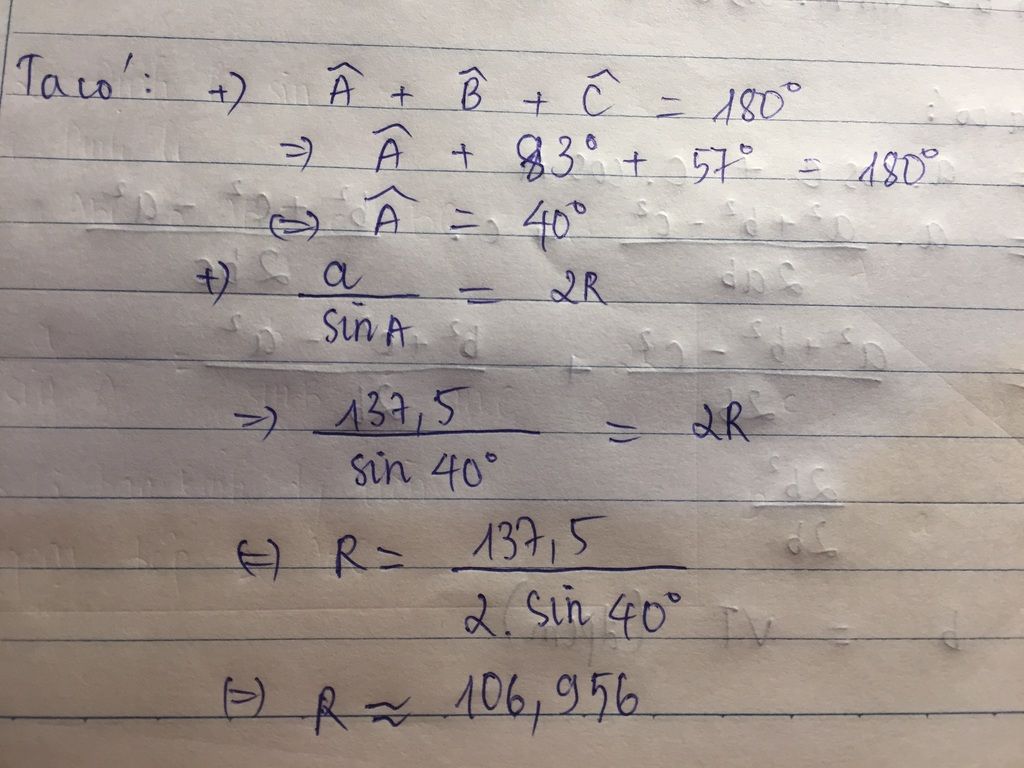 Ta có: +) Â + B̂ + Ĉ = 180°
=> Â + 83° + 57° = 180°
(=) Â = 40°
+) a / sin A = 2R
=> 137,5 / sin 40° = 2R
(=) R = 137,5 / 2. sin 40°
(=) R ≈ 106,956